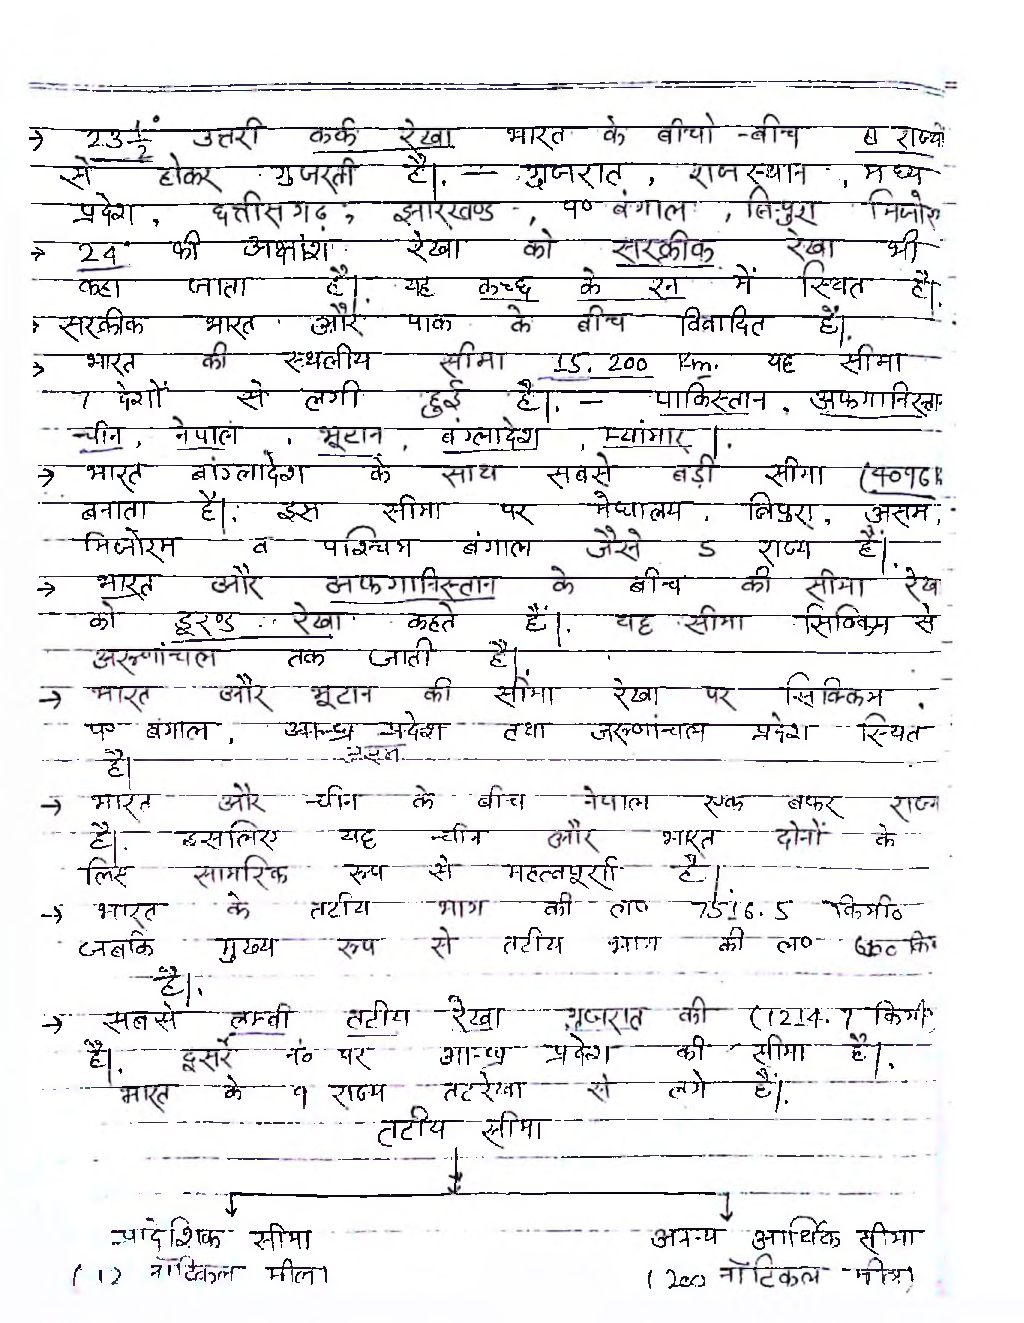 → 23½° उत्तरी कर्क रेखा भारत के बीचो-बीच 8 राज्यों
से होकर गुजरती है। - गुजरात, राजस्थान, मध्य
प्रदेश, छत्तीसगढ़, झारखण्ड, प० बंगाल, त्रिपुरा मिजोरम
→ 24° की अक्षांश रेखा को सरक्रीक रेखा भी
कहा जाता है। यह कच्छ के रन में स्थित है।
→ सरक्रीक भारत और पाक के बीच विवादित है।
→ भारत की स्थलीय सीमा 15,200 Km. यह सीमा
7 देशों से लगी हुई है। - पाकिस्तान, अफगानिस्ता
चीन, नेपाल, भूटान, बंग्लादेश, म्यांमार।
→ भारत बांग्लादेश के साथ सबसे बड़ी सीमा (4096k
बनाता है। इस सीमा पर मेघालय, त्रिपुरा, असम,
मिजोरम व पश्चिम बंगाल जैसे 5 राज्य हैं।
→ भारत और अफगानिस्तान के बीच की सीमा रेख
को डूरण्ड रेखा कहते हैं। यह सीमा सिक्किम से
अरूणांचल तक जाती है।
→ भारत और भूटान की सीमा रेखा पर सिक्किम,
प० बंगाल, आन्ध्र प्रदेश तथा अरूणांचल प्रदेश स्थित
असम
है।
→ भारत और चीन के बीच नेपाल एक बफर राज्य
है। इसलिए यह चीन और भारत दोनों के
लिए सामरिक रूप से महत्वपूर्ण है।
→ भारत के तटीय भाग की ल० 7516.5 किमी०
जबकि मुख्य रूप से तटीय भाग की ल० किम
है।
→ सबसे लम्बी तटीय रेखा गुजरात की (1214.7 किमी
है। दूसरे नं० पर आन्ध्र प्रदेश की सीमा है।
भारत के 9 राज्य तटरेखा से लगे हैं।
तटीय सीमा
प्रादेशिक सीमा अनन्य आर्थिक सीमा
(12 नॉटिकल मील) (200 नॉटिकल मील)